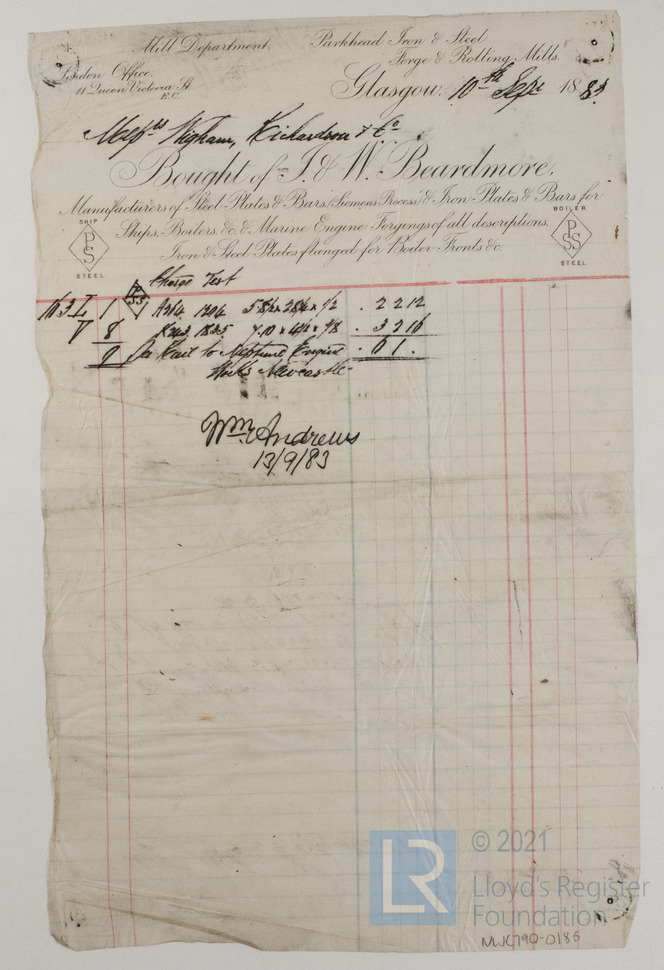 Mill Department
Parkhead Iron & Steel
Forge & Rolling Mills.
London Office.
11 Queen Victoria St
E.C.
Glasgow. 10th Sept 1883
Messrs Wigham, Richardson & Co
Bought of J. & W. Beardmore,
Manufacturers of Steel Plates & Bars (Siemens Process) & Iron Plates & Bars for
Ships, Boilers, &c & Marine Engine Forgings of all descriptions,
Iron & Steel Plates flanged for Boiler Fronts &c
SHIP
PSS
STEEL
BOILER
PSS
STEEL
Charge Test
163 I 1 PSS 1204 . 2 2 12
V 8 1825 . 3 2 16
9 to Neptune Engine . 6 1 .
Works Newcastle
Wm Andrews
13/9/83
LR
© 2021
Lloyd's Register
Foundation
NWC790-0186